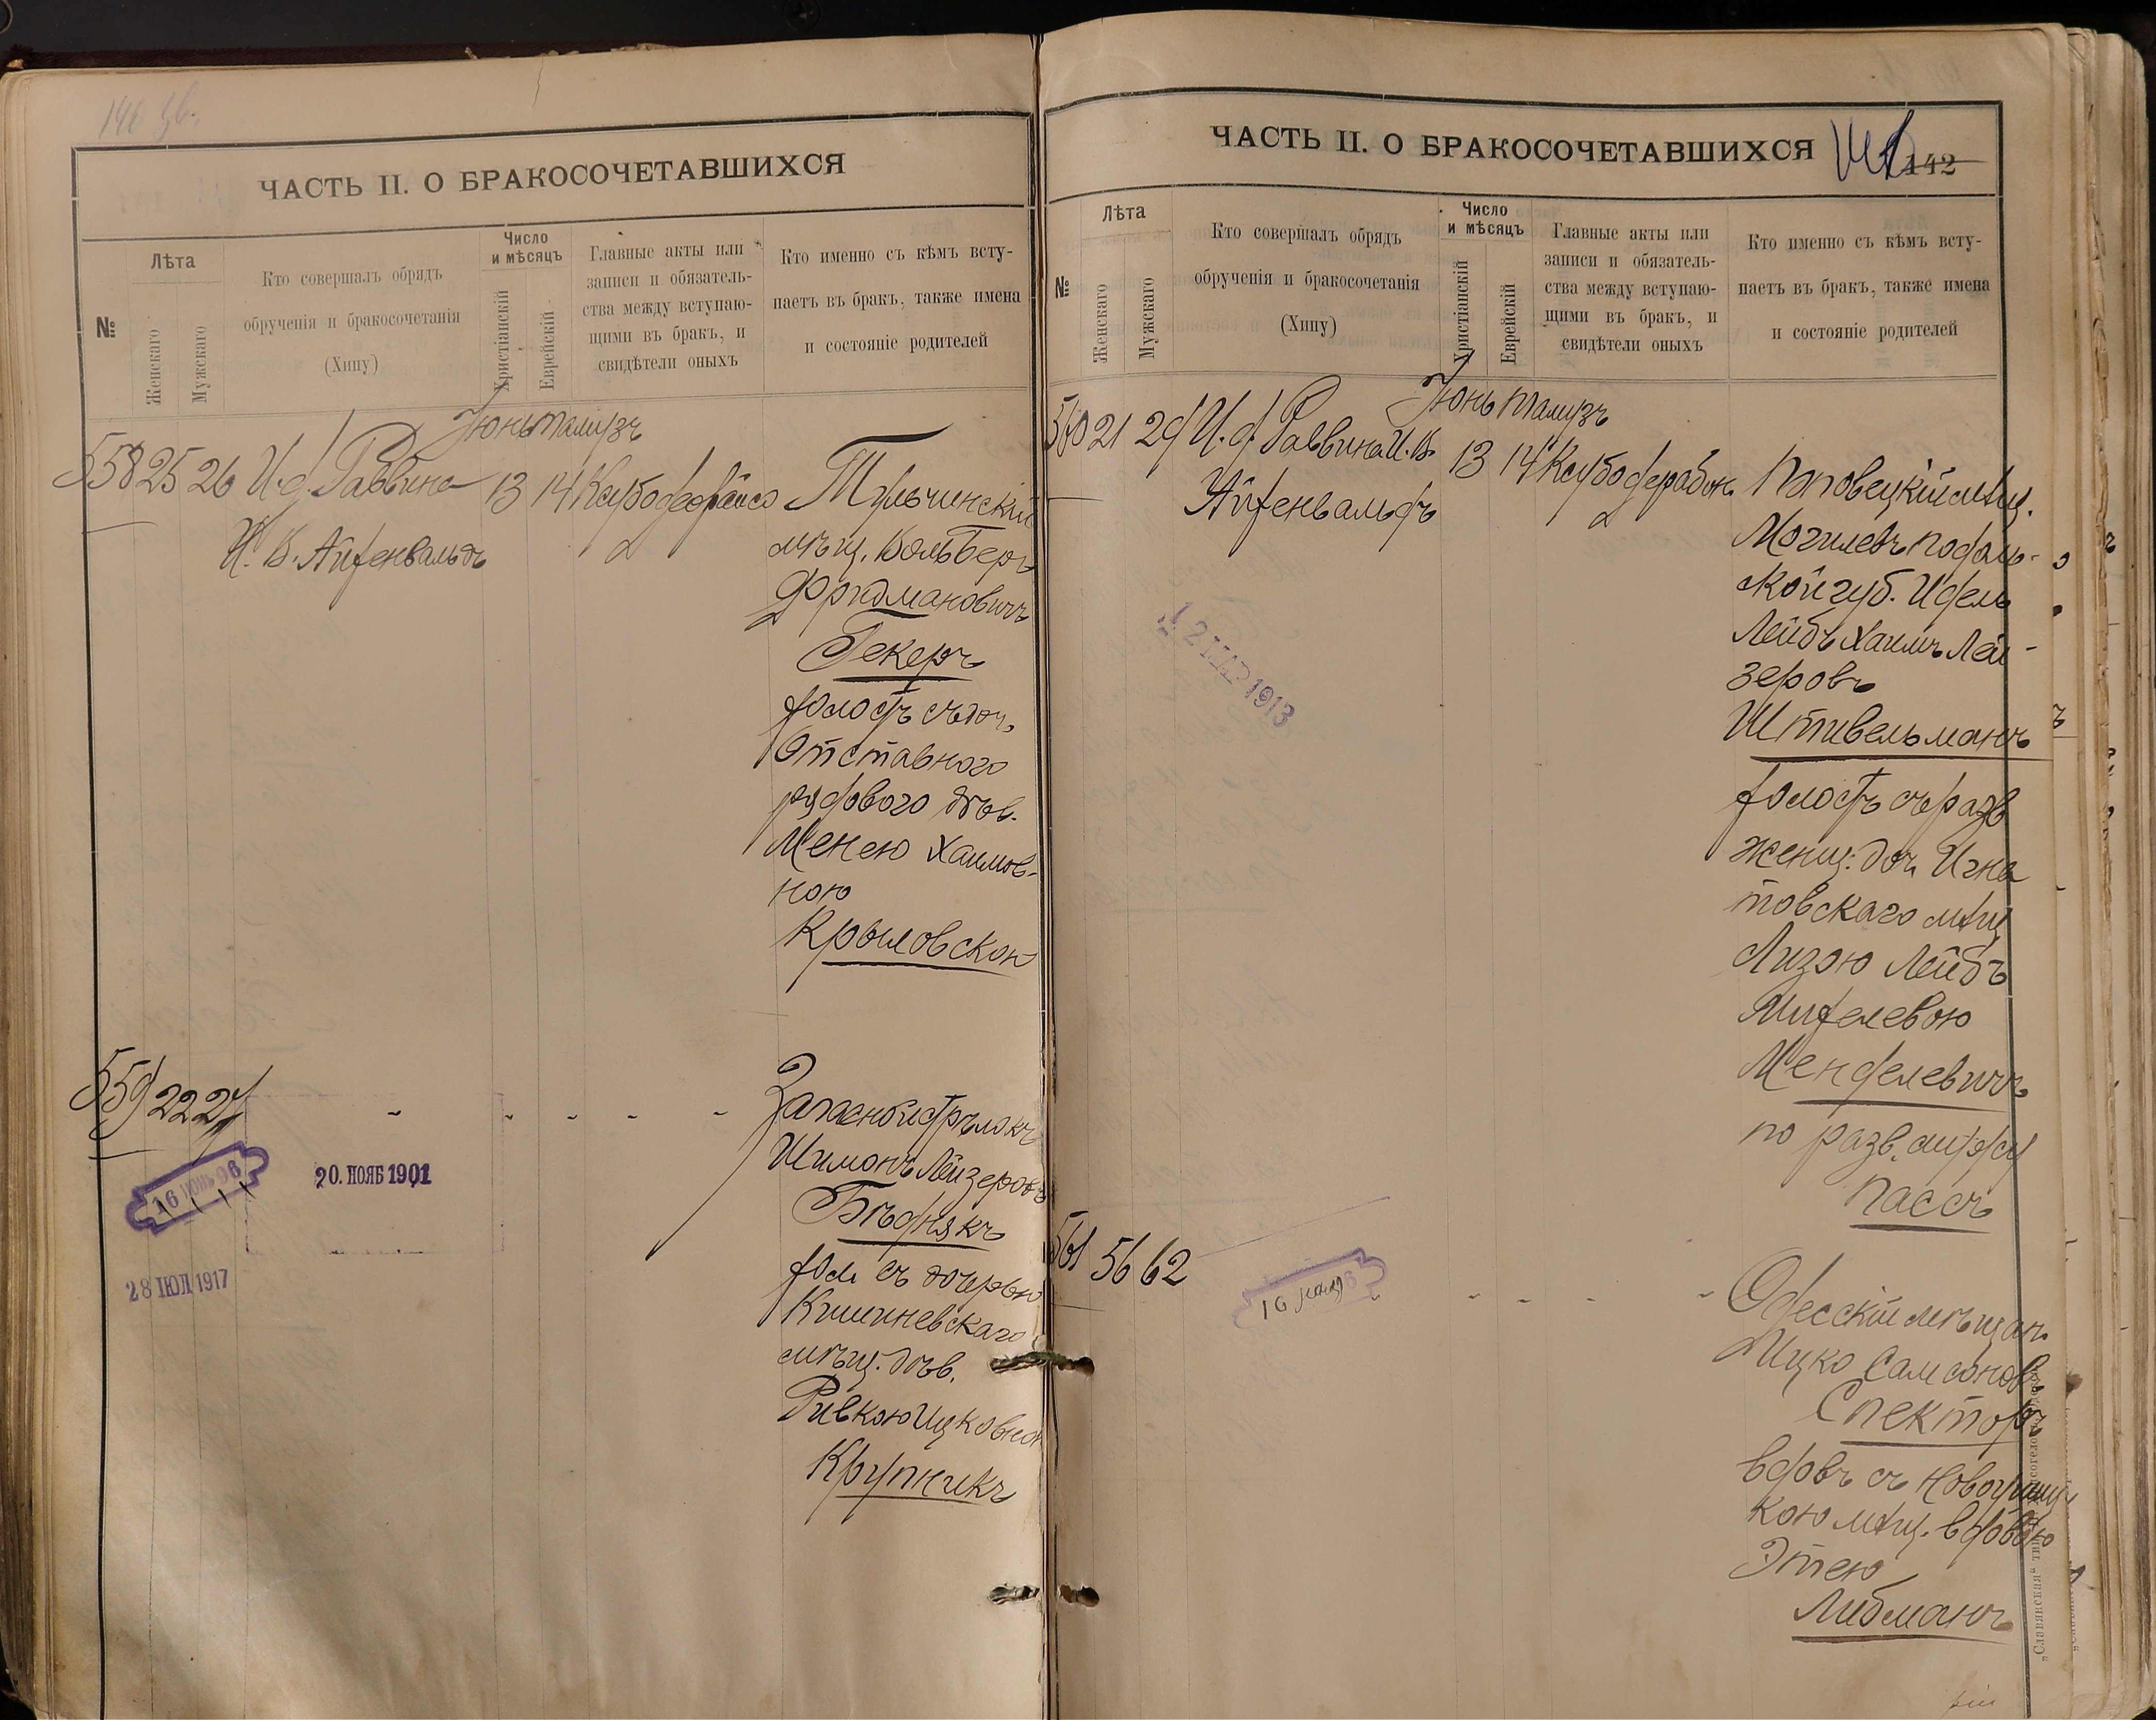 ЧАСТЬ II. О БРАКОСОЧЕТАВШИХСЯ
№
Лѣта
Женскаго
Мужскаго
Кто совершалъ обрядъ
обрученія и бракосочетанія
(Хипу)
Число
и мѣсяцъ
Христіанскій
Еврейскій
Главные акты или
записи и обязатель-
ства между вступаю-
щими въ бракъ, и
свидѣтели оныхъ
Кто именно съ кѣмъ всту-
паетъ въ бракъ, также имена
и состояніе родителей
Іюнь тамузъ
558 25 26 И. д. Раввина 13 14
И. В. Айзенвальдъ
Тульчинскій
мѣщ. Вольберъ
Фридмановичъ
Гекеръ
холостъ съ доч.
Отставного
рядового дѣв.
Менею Хаимов-
ною
Крыловской
559 22 27
Запасной стрѣлокъ
Шимонъ Лейзеровъ
Бѣднякъ
хол. съ дочерью
Кишиневскаго
мѣщ. дѣв.
Ривкою Ицковной
Крупникъ
16 ІЮНЬ 96
20. НОЯБ 1901
28 ІЮЛ 1917
ЧАСТЬ II. О БРАКОСОЧЕТАВШИХСЯ
142
№
Лѣта
Женскаго
Мужскаго
Кто совершалъ обрядъ
обрученія и бракосочетанія
(Хипу)
Число
и мѣсяцъ
Христіанскій
Еврейскій
Главные акты или
записи и обязатель-
ства между вступаю-
щими въ бракъ, и
свидѣтели оныхъ
Кто именно съ кѣмъ всту-
паетъ въ бракъ, также имена
и состояніе родителей
Іюнь тамузъ
560 21 29 И. д. Раввина И. В. 13 14
Айзенвальдъ
12 МАР 1913
Поповецкій мѣщ.
Могилевъ подоль-
ской губ. Идель
Лейбъ Хаимъ Лей-
зеровъ
Штивельманъ
холостъ съ разв
женщ. доч. Игна
товскаго мѣщ
Лизою Лейбъ
Михелевою
Менделевичъ
по разв. мужу
Пассъ
561 56 62
Одесскій мѣщан.
Ицко Самсоновъ
Спекторъ
вдовъ съ
кою мѣщ. вдовою
Этею
Либманъ